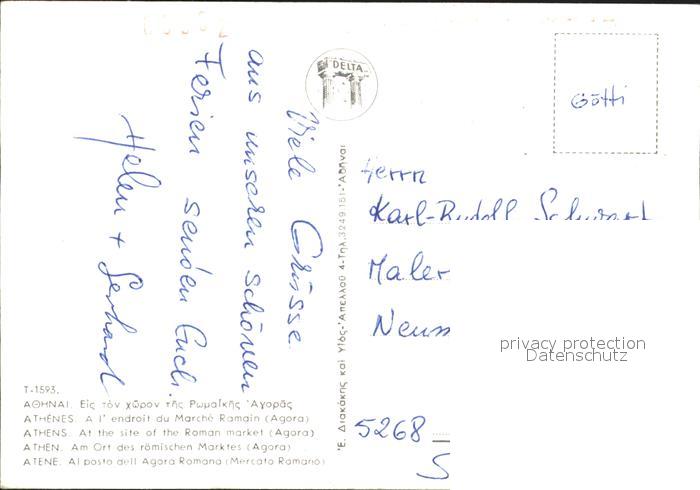 Viele Grüsse
aus unseren schönen
Ferien senden Euch
Helen + Gerhard
DELTA
Götti
Herrn
Karl-Rudolf
Maler
5268
privacy protection
Datenschutz
Ἐ. Διακάκης καὶ Υἱός-Ἀπελλοῦ 4-Τηλ.3249181-Ἀθῆναι
T-1593.
ΑΘΗΝΑΙ. Εἰς τὸν χῶρον τῆς Ρωμαϊκῆς Ἀγορᾶς
ATHÉNES. A l' endroit du Marché Ramain (Agora)
ATHENS. At the site of the Roman market (Agora)
ATHEN. Am Ort des römischen Marktes (Agora)
ATENE. Al posto dell Agora Romana (Mercato Ramano)